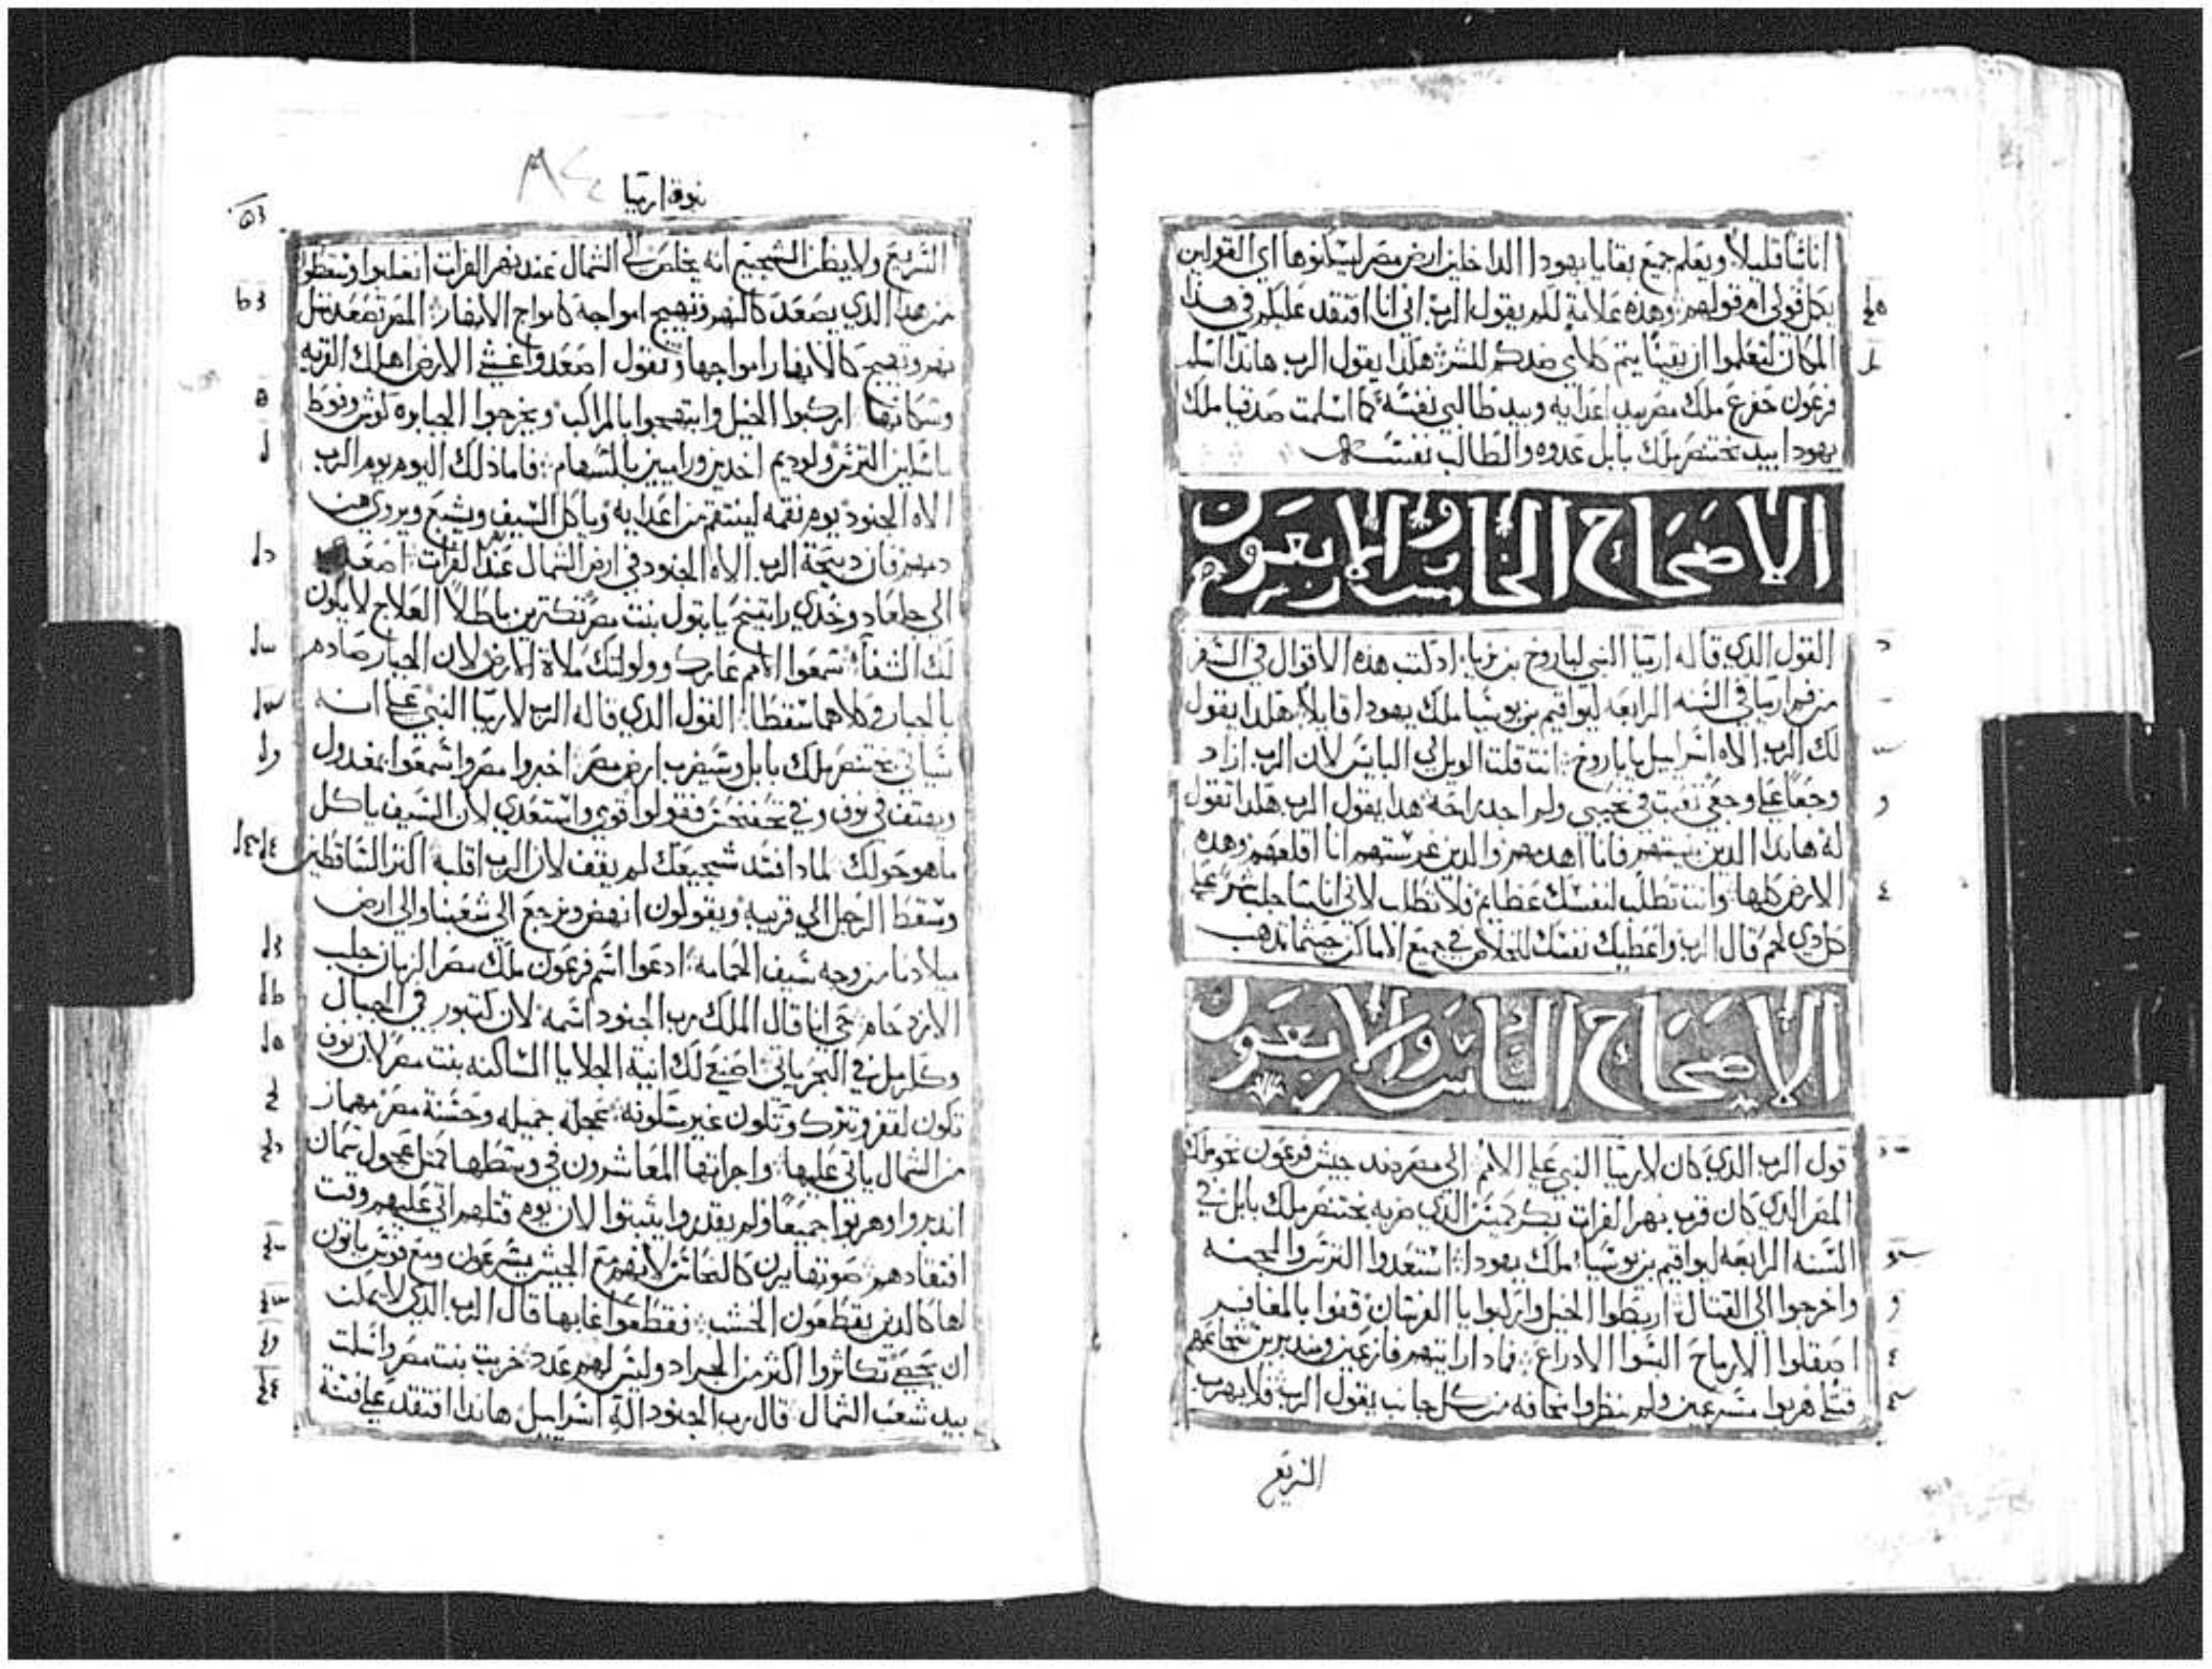 اناسًا قليلاً ويعلم جميع بقايا يهودا الداخلين ارض مصر ليسكنوها اي القولين
يكمل قولي ام قولهم وهذه علامة لكم يقول الرب اني انا افتقد عليكم في هذا
المكان لتعلموا ان يقينًا يتم كلامي ضدكم للشر هكذا يقول الرب هانذا اسلم
فرعون حفرع ملك مصر بيد اعدايه وبيد طالبي نفسه كما اسلمت صدقيا ملك
يهودا بيد بختنصر ملك بابل عدوه والطالب نفسه
الاصحاح الخامس والاربعون
القول الذي قاله ارميا النبي لباروخ بن نريا اذ كتب هذه الاقوال في السفر
من فم ارميا في السنه الرابعه ليواقيم بن يوسيا ملك يهودا قايلاً هكذا يقول
لك الرب الاه اسراييل يا باروخ انت قلت الويل لي البايس لان الرب ازاد
وجعًا على وجعي تعبت في نحيبي ولم اجد راحة هذا يقول الرب هكذا تقول
له هانذا الذين بنيتهم فانا اهدمهم والذين غرستهم انا اقلعهم وهذه
الارض كلها وانت تطلب لنفسك عظايم فلا تطلب لاني انا سا جلب شر على
كل ذي لحم قال الرب واعطيك نفسك للخلاص في جميع الاماكن حيثما تذهب
الاصحاح السادس والاربعون
قول الرب الذي كان لارميا النبي على الامم الى مصر ضد جيش فرعون نخو ملك
المصر الذي كان قرب نهر الفرات بكركميش الذي ضربه بختنصر ملك بابل في
السنه الرابعه ليواقيم بن يوسيا ملك يهودا استعدوا الترس والمجنه
واخرجوا الى القتال اربطوا الخيل واركبوا يا الفرسان قفوا بالمغافر
اصقلوا الارماح البسوا الادراع فماذا رايتهم فازعين ومدبرين شجاعهم
قتلى هربوا مسرعين ولم ينظروا مخافه من كل جانب يقول الرب فلا يهرب
السريع
نبوة ارميا
السريع ولا يظن الشجيع انه يخلص الى الشمال عند نهر الفرات انغلبوا وسقطوا
من هذا الذي يصعد كالنهر وتهيج امواجه كامواج الانهار المصر تصعد مثل
نهر وتهيج كالانهار امواجها وتقول اصعد واغشي الارض اهلك القريه
وسكانها اركبوا الخيل وابتهجوا بالمراكب ويخرجوا الجبابره كوش وفوط
ماسكين الترس ولوديم اخدين وراميين بالسهام فاما ذلك اليوم يوم الرب
الاه الجنود يوم نقمه لينتقم من اعدايه وياكل السيف ويشبع ويروى من
دمهم فان ذبيحة الرب الاه الجنود في ارض الشمال عند الفرات اصعدي
الى جلعاد وخذي راتينج يا بتول بنت مصر تكثرين باطلاً العلاج لا يكون
لك الشفا سمعوا الامم عارك وولولتك ملاة الارض لان الجبار صادم
بالجبار وكلاهما سقطا القول الذي قاله الرب لارميا النبي على انه
سياتي بختنصر ملك بابل وسيضرب ارض مصر اخبروا مصر واسمعوا بمغدول
ويهتف في نوف وفي تحفنحس فقولوا قوي واستعدي لان السيف ياكل
ما هو حولك لماذا فسد شجيعك لم يقف لان الرب اقلبه اكثر الساقطين
وسقط الرجل الى قريبه ويقولون انهض ونرجع الى شعبنا والى ارض
ميلادنا من وجه سيف الحمامه ادعوا اسم فرعون ملك مصر الزمان جلب
الازدحام حي انا قال الملك رب الجنود اسمه لان كتبور في الجبال
وكرمل في البحر ياتي اصنعي لك انية الجلايا الساكنه بنت مصر لان نوف
تكون لقفر وتترك وتكون غير مسكونه عجله جميله وحسنة مصر مهماز
من الشمال ياتي عليها واجراتها المعاشرون في وسطها كمثل عجول سمان
اندبروا وهربوا جميعًا ولم يقدروا يثبتوا لان يوم قتلهم اتى عليهم وقت
افتقادهم صوتها يرن كالنحاس لانهم مع الجيش يسرعون ومع فوس ياتون
لها كالذين يقطعون الخشب فقطعوا غابها قال الرب الذي لا يمكن
ان يحصى تكاثروا اكثر من الجراد وليس لهم عدد خزيت بنت مصر واسلمت
بيد شعب الشمال قال رب الجنود اله اسراييل هانذا افتقد على فتنة